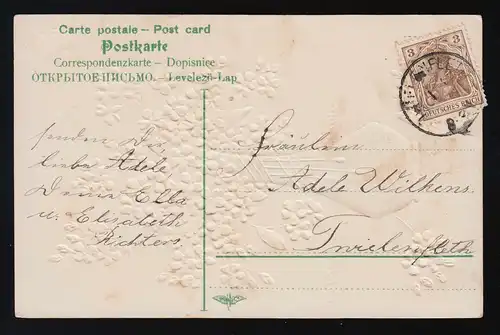 Carte postale – Post card
Postkarte
Correspondenzkarte – Dopisnice
ОТКРЫТОЕ ПИСЬМО. – Levelező-Lap
3 3
DEUTSCHES REICH
senden Dir,
liebe Adele,
Deine Ella
u. Elisabeth
Richters
Fräulein
Adele Wilkens
Twielenfleth